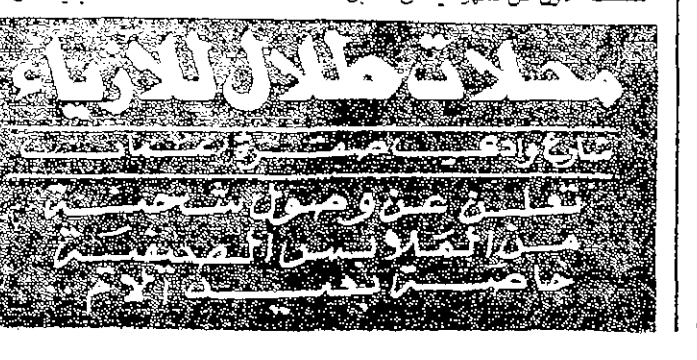 محلات طلال للأزياء
شارع وادي صقرة عمان
تعلن عن وصول شحنة
من الملابس الصيفية
خاصة بعيد الأم